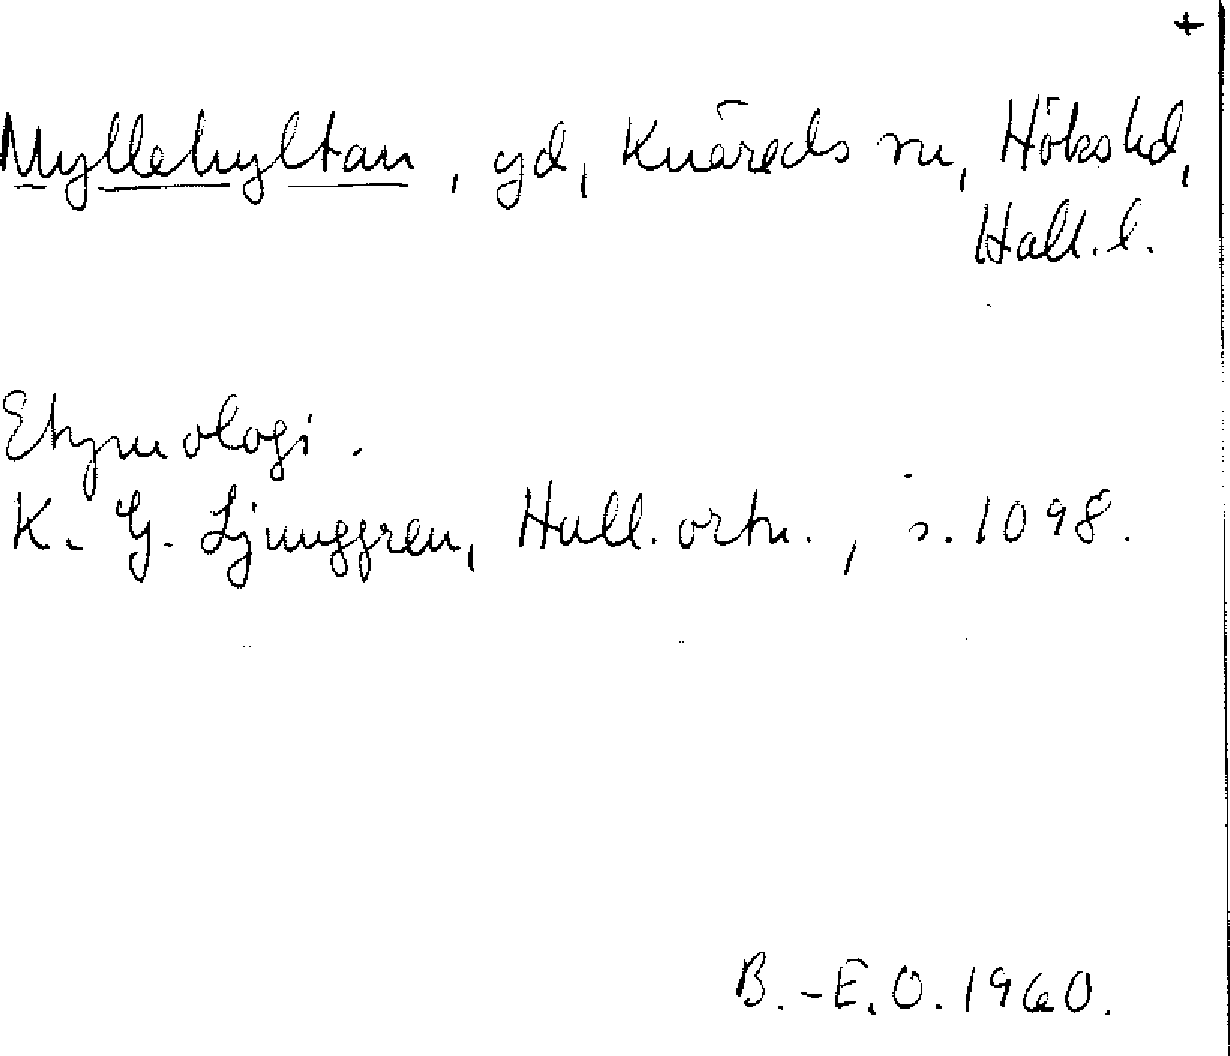 +
Myllehyltan, gd, Knäreds sn, Höks hd,
Hall. l.
Etymologi.
K. G. Ljunggren, Hall. ortn., s. 1098.
B.-E. O. 1960.